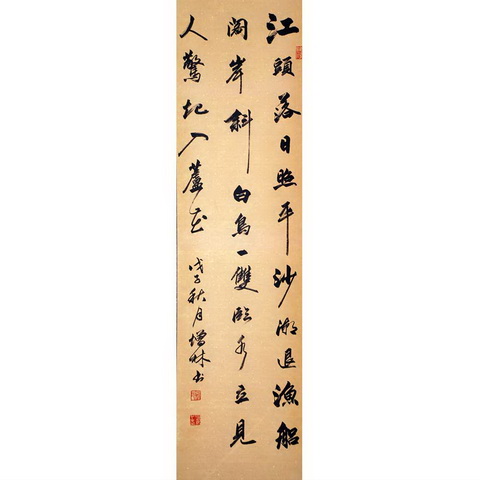 江頭落日照平沙潮退漁船
阁岸斜白鳥一雙臨水立見
人驚起入蘆花
戊子秋月增林书